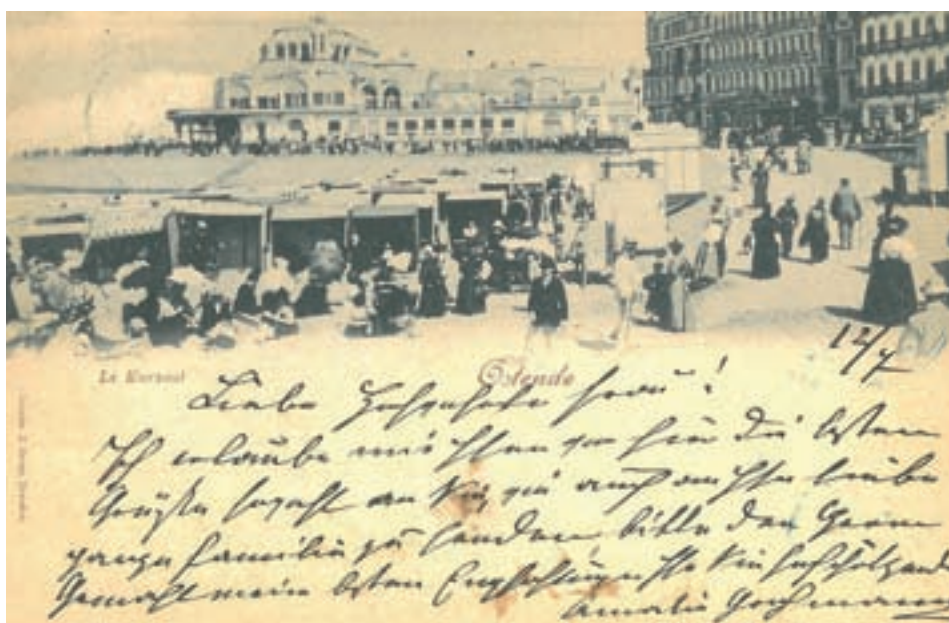 12/7
Le Kursaal
Ostende
Liebe Frau!
Ich erlaube mir Ihnen von hier die besten
Grüße sowohl an Sie, wie auch an Ihre liebe
ganze Familie zu senden bitte den Herrn
Gemahl mein besten Empfehlungen Ihre Sie hochschätzende
Amalie